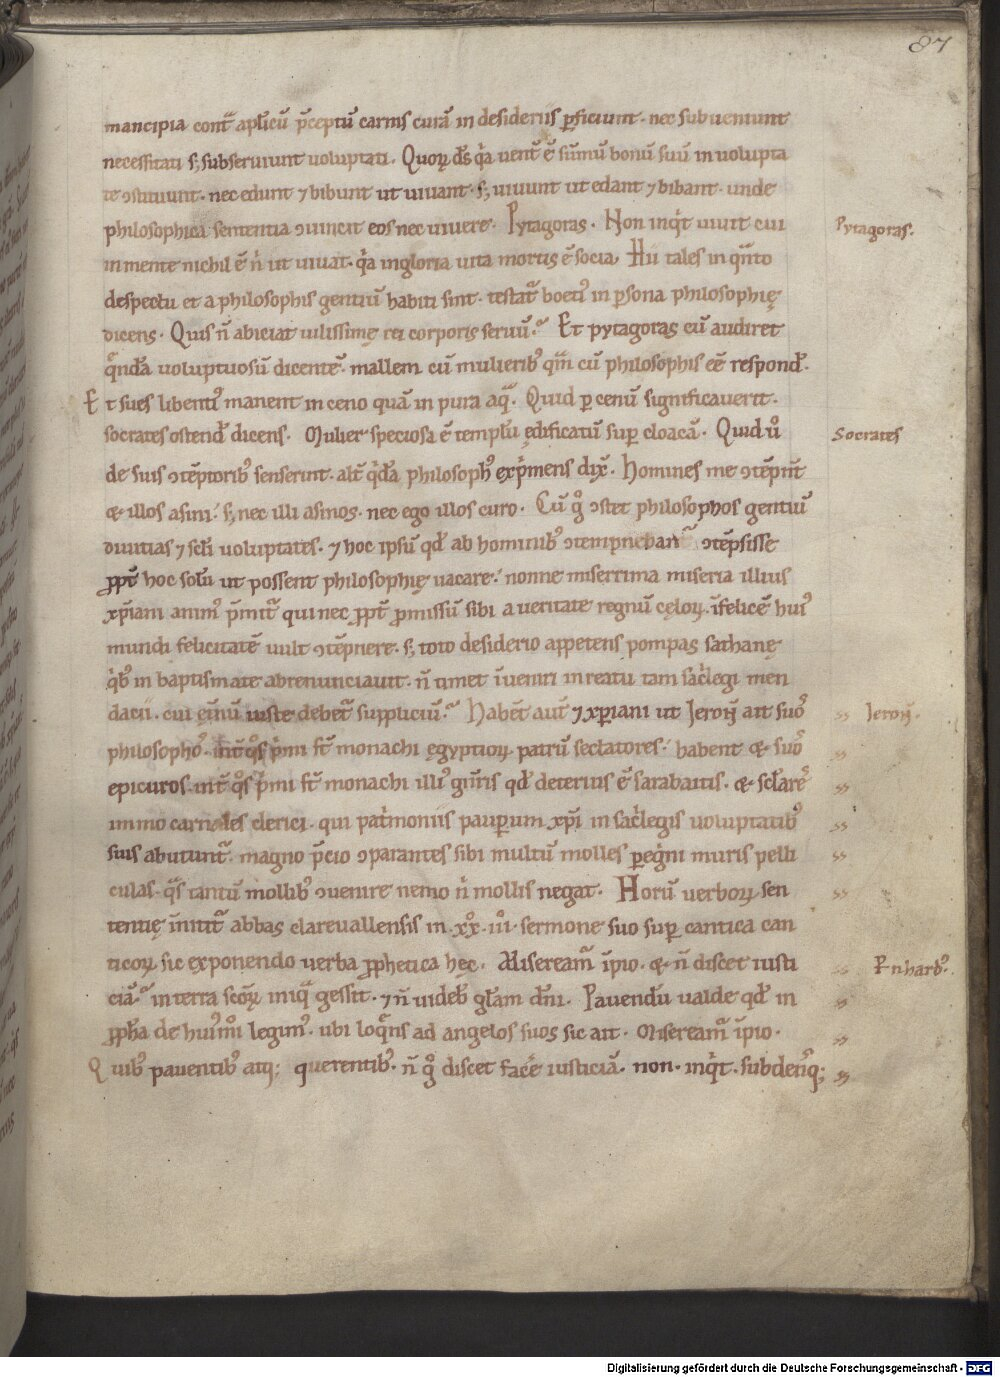 87
mancipia contᷓ apl̅icū p̅ceptū carnis curā in desideriis ꝑficiunt. nec subueniunt
necessitati s; subseruiunt uoluptati. Quoꝝ d̅s q̇a uent̅ ē sūmū bonū suū in uolupta
te ↄstituunt. nec edunt ⁊ bibunt ut uiuant. s; uiuunt ut edant ⁊ bibant. unde
philosophica sententia ↄuincit eos nec uiuere. Pytagoras. Non inq̇t uiuit cui
Pytagoras.
in mente nichil ē n̍ ut uiuat. q̇a in gloria uita mortis ē socia. Hii tales in qn̅to
despectu et a philosophis gentiū habiti sint. testat᷑ boeti᷒ in ꝑsona philosophię
dicens. Quis n̅ abiciat uilissimę rei corporis seruū. Et pytagoras cū audiret
q̅nda̅ uoluptuosū dicentē. mallem cū mulierib᷒ qm̅ cū philosophis eē respond̅.
Et sues libenti᷒ manent in ceno quā in pura aqᷓ. Quid per cenū significauerit.
socrates ostend̅ dicens. Mulier speciosa ē templū ędificatū suꝑ cloacā. Quid ů
Socrates
de suis ↄtēptorib᷒ senserunt. alt̅ q̇dā philosoph᷒ exp̍mens dix̅. Homines me ↄtēpn̅t
& illos asini. s; nec illi asinos. nec ego illos curo. Cū g̊ ↄstet philosophos gentiū
diuitias ⁊ sc̅li uoluptates. ⁊ hoc ipsū qd̅ ab hominib᷒ ↄtempnebant᷑ ↄtēpsisse
ꝓpt̅ hoc solū ut possent philosophię uacare. nonne miserrima miseria illius
xp̅iani anim᷒ p̅mit᷑ qui nec ꝓpt̅ ꝓmissū sibi a ueritate regnū cęloꝝ. īfelicē hui᷒
mundi felicitatē uult ↄtēpnere. s; toto desiderio appetens pompas sathanę
q̇b᷒ in baptismate abrenunciauit. n̅ timet īueniri in reatu tam sac̍legi men
dacii. cui et̅nū iuste debet᷑ suppliciū. Habēt aut̅ ⁊ xp̅iani ut Jeron̅ ait suo᷒
Jeron̅.
philosopho᷒. int̅ q̊s p̍mi st̅ monachi ęgyptioꝝ patrū sectatores. habent & suo᷒
epicuros. int̅ q̊s p̍mi st̅ monachi illi᷒ gn̅ris qd̅ deterius ē sarabaitis. & sc̅lare᷒
immo carnales clerici. qui pat̍moniis pauꝑum xp̅i in sac̍legis uoluptatib᷒
suis abutunt᷑. magno p̅cio ↄparantes sibi multū molles ꝑeg̍ni muris pelli
culas. q̊s tantū mollib᷒ ↄuenire nemo n̍ mollis negat. Horū uerboꝝ sen
tentię īnitit᷑ abbas clareuallensis in .xx̊. iii̊. sermone suo suꝑ cantica can
ticoꝝ sic exponendo uerba ꝓphetica hęc. Miseream᷑ īpio. & n̅ discet iusti
Bnhard᷒.
ciā. in terra sc̅oꝝ iniqᷓ gessit. ⁊ n̅ uideb̅ gl̅am dn̅i. Pauendū ualde qd̅ in
ꝓph̅a de hui᷒mo̍i legim᷒. ubi loq̅ns ad angelos suos sic ait. Miseream᷑ īpio.
Quib᷒ pauentib᷒ atq; querentib᷒. n̅ g̊ discet facē iusticiā. non. inq̇t. subdens̅q;
Digitalisierung gefördert durch die Deutsche Forschungsgemeinschaft - DFG